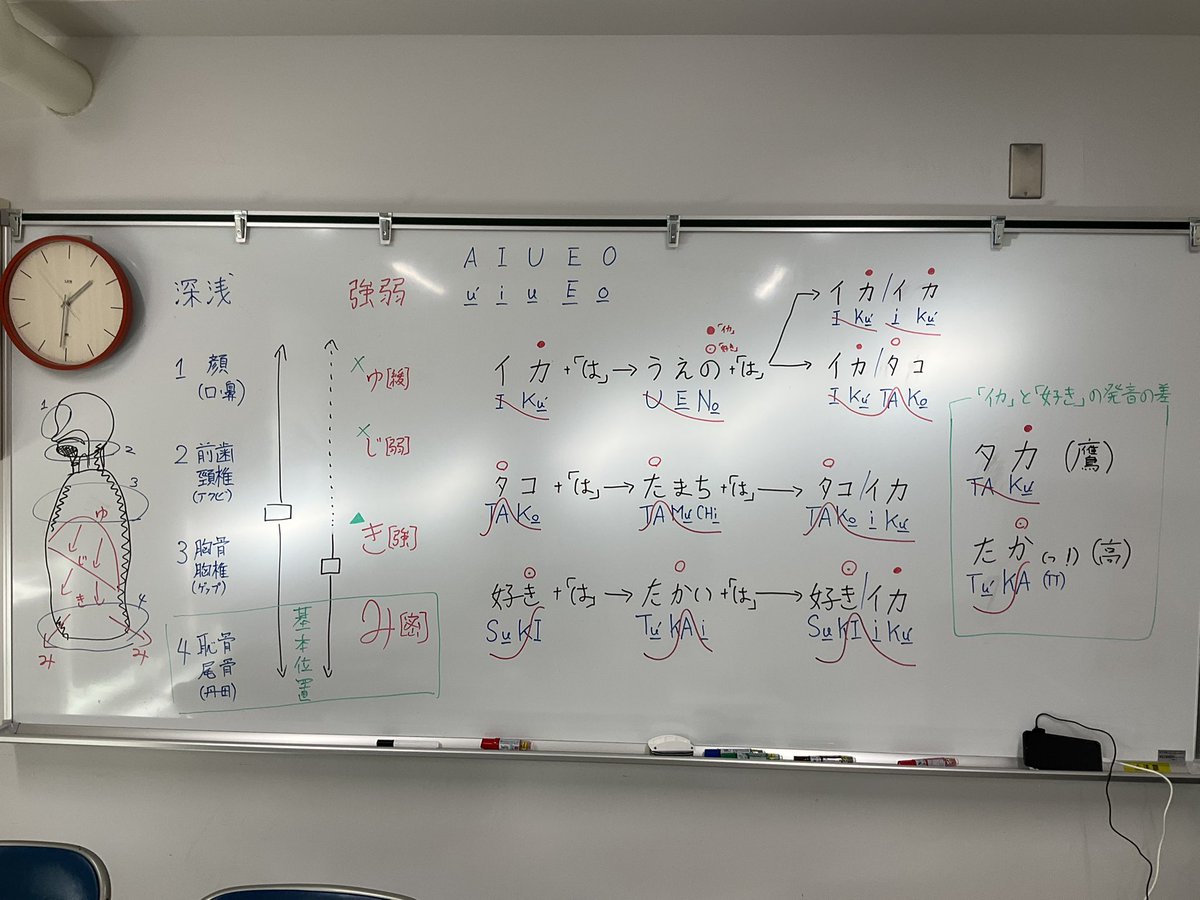 深浅
1 顔
(口・鼻)
2 前歯
頸椎
(アクビ)
3 胸骨
胸椎
(ゲップ)
4 恥骨
尾骨
(丹田)
基本位置
強弱
×ゆ[緩]
×じ[弱]
▲き[強]
み[密]
1
2
3
4
ゆ
じ
き
み
み
A I U E O
ú i u E o
イカ+「は」→うえの+「は」
I Kú
U E No
●「イカ」
「好き」
イカ/イカ
I Kú i Kú
イカ/タコ
I Kú TA Ko
タコ+「は」→たまち+「は」→タコ/イカ
TA Ko
TA Mú CHi
TA Ko i Kú
好き+「は」→たかい+「は」→好き/イカ
Su KI
Tú KA i
Su KI i Kú
「イカ」と「好き」の発音の差
タカ (鷹)
TA Kú
たか(っ!) (高)
Tú KA (TT)